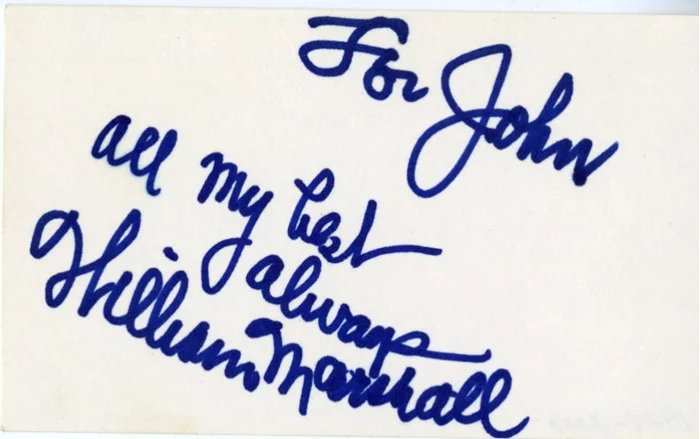 For John
all my best
always
William Marshall